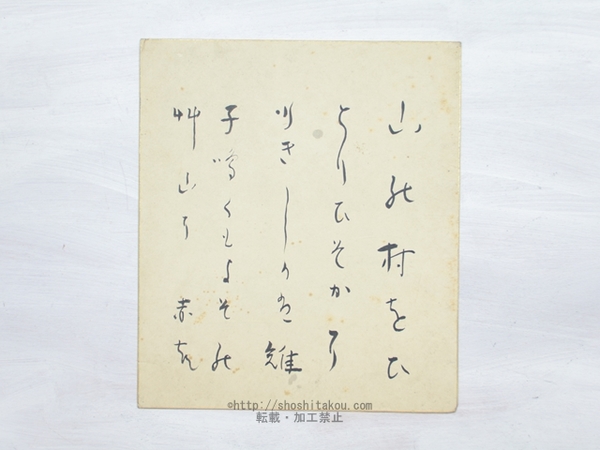 山の村をひ
とりひそかに
行きしかば雉
子鳴くもよその
艸山に 赤彦
©http://shoshitakou.com/
転載・加工禁止